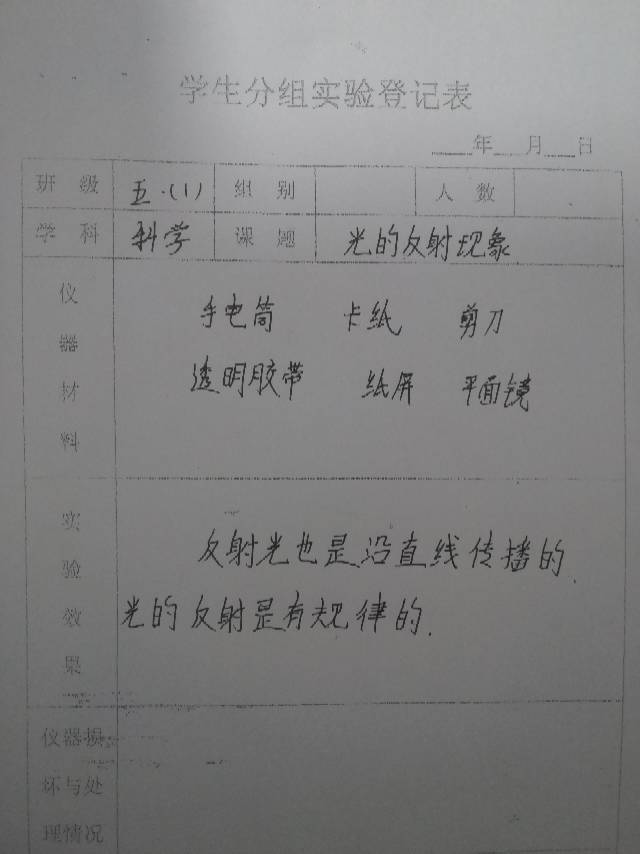 学生分组实验登记表
____年___月___日
班级 五.(1) 组别 人数
学科 科学 课题 光的反射现象
仪器材料
手电筒 卡纸 剪刀
透明胶带 纸屏 平面镜
实验效果
反射光也是沿直线传播的.
光的反射是有规律的.
仪器损
坏与处
理情况